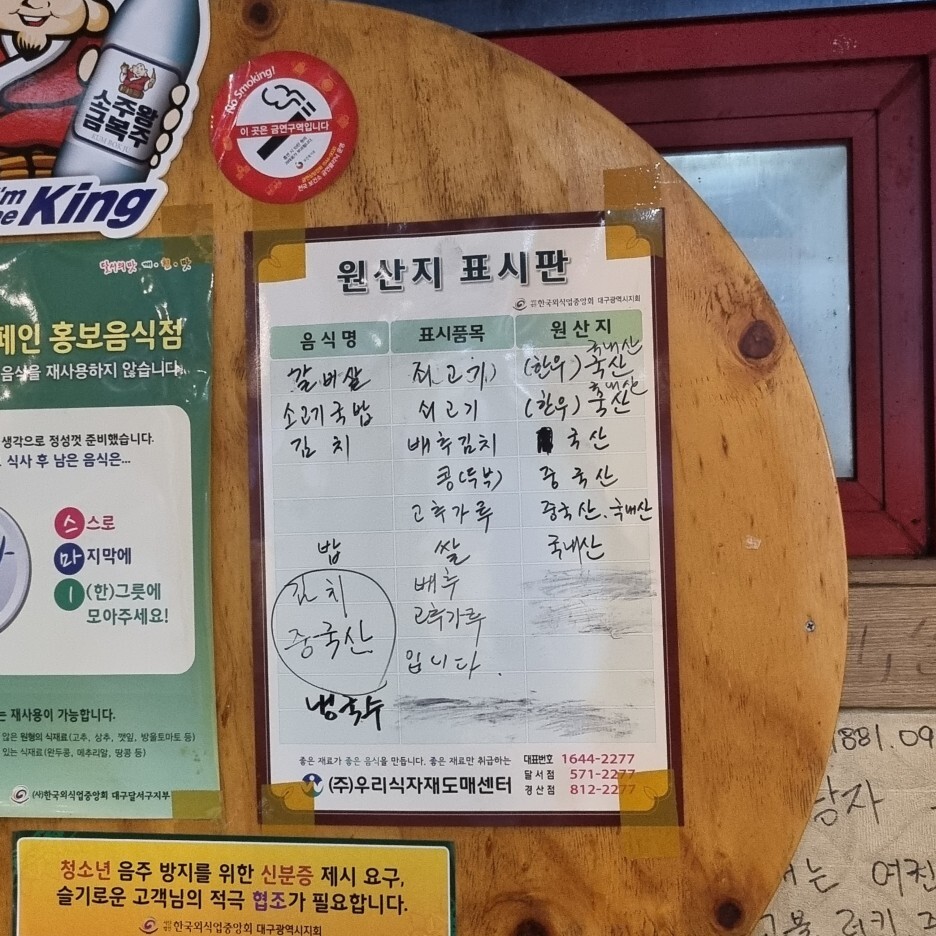 소주왕
금복주
KUM BOK JU
I'm
he King
No Smoking!
이 곳은 금연구역입니다
달서의맛
페인 홍보음식점
음식을 재사용하지 않습니다.
생각으로 정성껏 준비했습니다.
식사 후 남은 음식은...
스스로
마지막에
이(한)그릇에
모아주세요!
는 재사용이 가능합니다.
않은 원형의 식재료(고추, 상추, 깻잎, 방울토마토 등)
있는 식재료(완두콩, 메추리알, 땅콩 등)
(사)한국외식업중앙회 대구달서구지부
원산지 표시판
한국외식업중앙회 대구광역시지회
음식명 표시품목 원산지
갈비살 쇠고기 (한우) 국산 국내산
소고기국밥 쇠고기 (한우) 국산 국내산
김치 배추김치 국산
콩(두부) 중국산
고추가루 중국산.국내산
밥 쌀 국내산
김치 배추
중국산 고추가루
입니다.
냉국수
좋은 재료가 좋은 음식을 만듭니다. 좋은 재료만 취급하는
(주)우리식자재도매센터
대표번호 1644-2277
달서점 571-2277
경산점 812-2277
청소년 음주 방지를 위한 신분증 제시 요구,
슬기로운 고객님의 적극 협조가 필요합니다.
한국외식업중앙회 대구광역시지회
1881.09
남자
는 여친